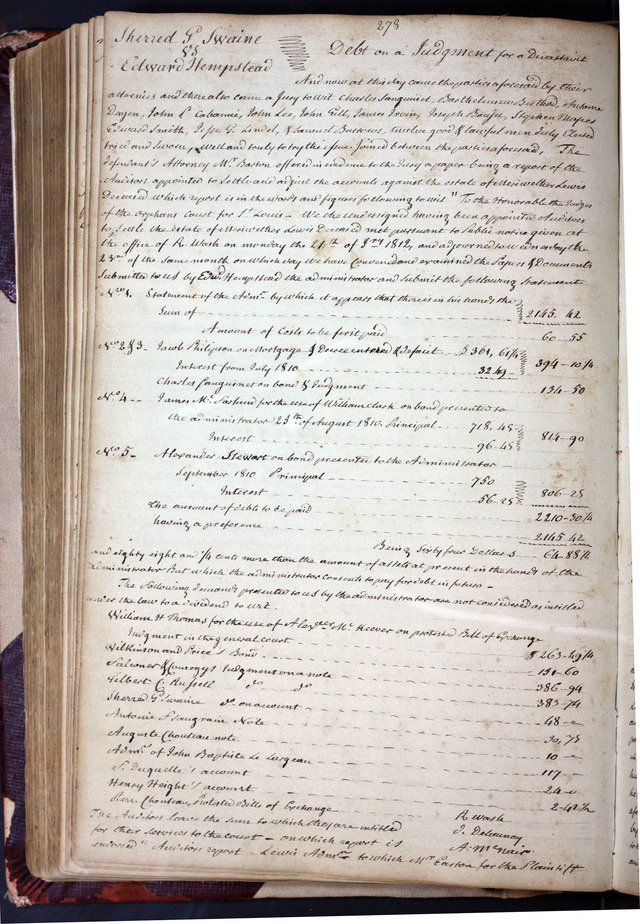 278
Sherred G. Swaine
vs
Edward Hempstead
Debt on a Judgment for a Devastavit
And now at this day came the parties aforesaid by their
attornies and thereto also came a Jury to wit Charles Sanguinet, Bartholomew Berthold, Antoine
Dangen, John L Cabanné, John Lee, John Gill, James Irwin, Joseph Bouju, Stephen
Edward Smith, Jesse G. Lindel, & Samuel Burrows, twelve good & lawful men duly Elected
tried and Sworn, well and truly to try the issue Joined between the parties aforesaid, The
defendant's Attorney Mr. Easton offered in evidence to the Jury a paper being a report of the
Auditors appointed to Settle and adjust the accounts against the estate of Meriwether Lewis
Deceased which report is in the words and figures following to wit "To the Honorable the Judges
of the orphans Court for St Louis - We the undersigned having been appointed Auditors
to settle the estate of Meriwether Lewis Deceased met pursuant to Public notice given at
the office of R. Wash on monday the 21th of Jry 1812, and adjourned to wednesday the
23rd of the same month on which day we have Convened and examined the Papers & Documents
Submitted to us by Edwd Hempstead the administrator and Submit the following Statement
No 1. Statement of the Admr by which it appears that there is in his hands the
Sum of 2145. 42
Amount of Costs to be first paid 60-55
No 2 & 3- Jacob Philipson on Mortgage & Decree entered & default $ 361, 61¼
Interest from July 1810 32 49 394-10¼
Charles Sanguinet on bond & Judgment 134-50
No 4- James McFarland for the use of William Clark on bond presented to
the administrator 25th of August 1810. Principal 718. 45
Interest 96-45 814-90
No. 5- Alexander Stewart on bond presented to the Administrator
September 1810 Principal 750
Interest 56-25 806-25
The amount of debts to be paid
having a preference 2210-30¼
2145 42
Being Sixty four Dollars 64-88¼
and eighty eight and ¼ cents more than the amount of assets at present in the hands of the
administrator But which the administrator Consents to pay for debt in futuro -
The Following demands presented to us by the administrator are not considered as intitled
under the law to a dividend to wit.
William H Thomas for the use of Alexder McKeever on protested Bill of Exchange
Judgment in the general court $ 263-49¼
Wilkinson and Price's Bond 151-60
Falconer & Comegys Judgment on a note 386-94
Gilbert C. Russell do do 383-74
Sherred G Swaine do. on account 48-
Antoine F Saugrain Note 30,75
Auguste Chouteau note 10-
Admr. of John Baptiste Le 117-
F. Duquette's account 24-
Henry Height's account 2-42½
Pierre Chouteau, Protested Bills of Exchange
The Auditors leave the Sum to which they are intitled
for their services to the court - on which report is
endorsed "Auditors report - Lewis Admr - to which Mr Easton for the Plaintiff
R Wash
D. Delaunay
A. McNair